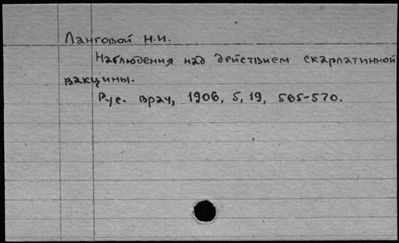 Ланговой Н.И.
Наблюдения над действием скарлатинной
вакцины.
Рус. врач, 1906, 5, 19, 565-570.